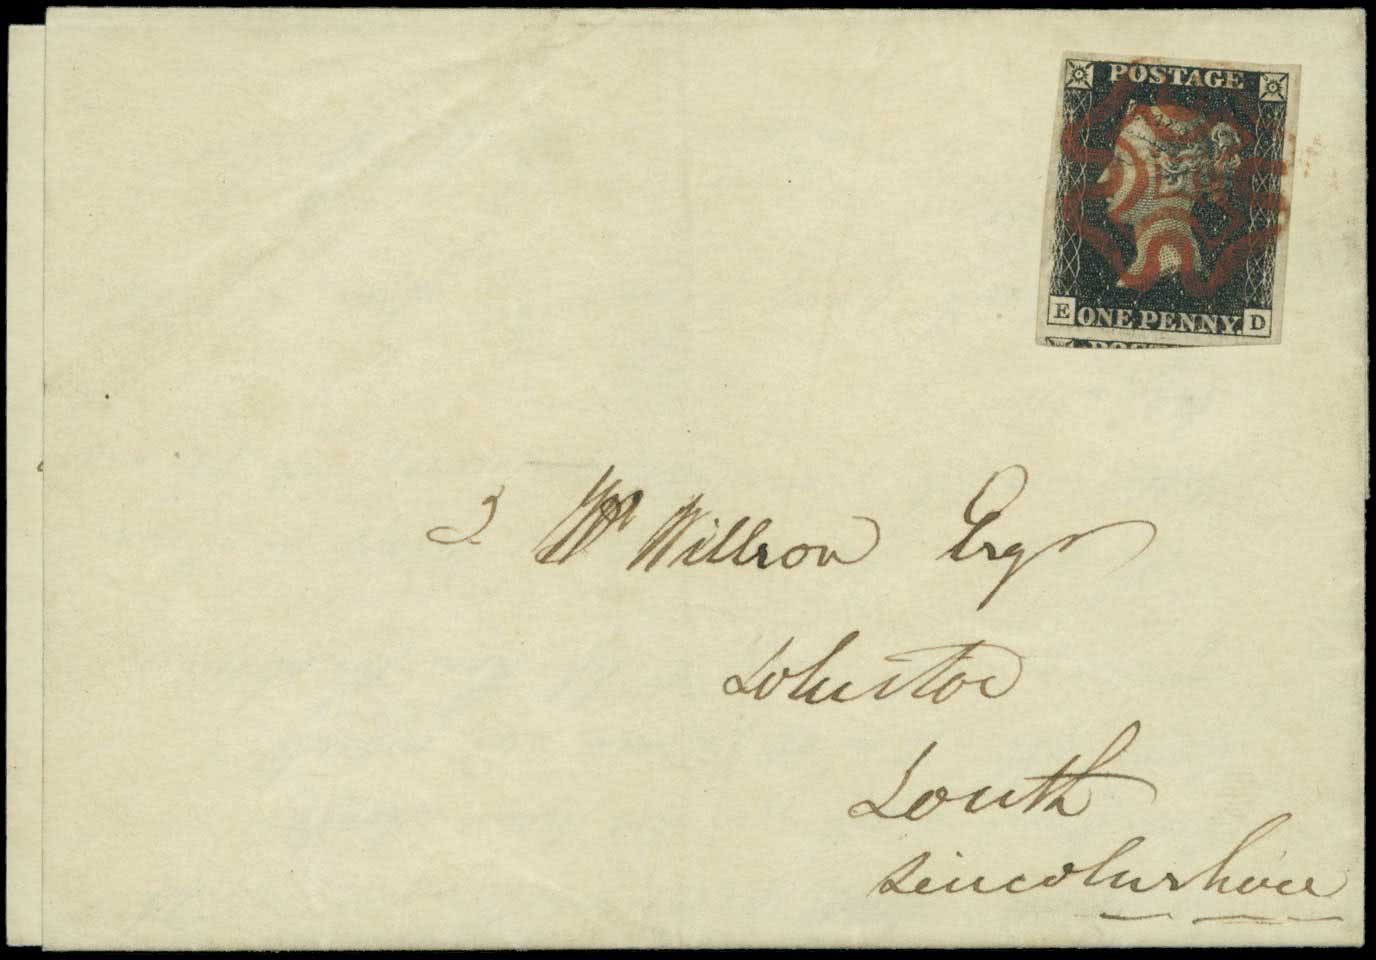 POSTAGE
E ONE PENNY. D
POST
Wm Willson Esqr
Solicitor
Louth
Lincolnshire